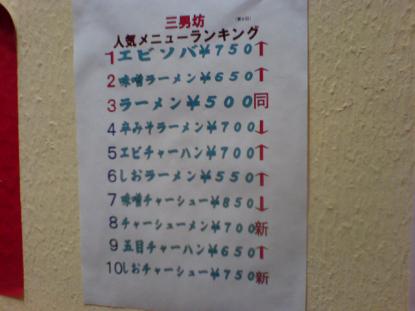 三男坊
人気メニューランキング
1エビソバ¥750↑
2味噌ラーメン¥650↑
3ラーメン¥500同
4辛みそラーメン¥700↓
5エビチャーハン¥700↑
6しおラーメン¥550↑
7味噌チャーシュー¥850↓
8チャーシューメン¥700新
9五目チャーハン¥650↑
10しおチャーシュー¥750新